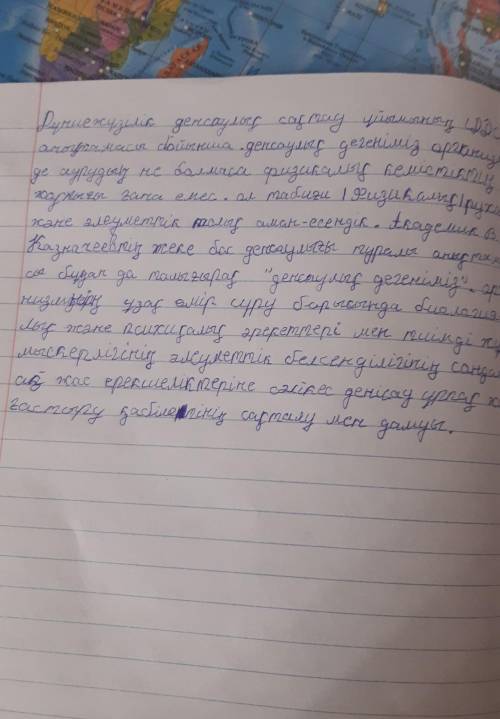 Дүниежүзілік денсаулық сақтау ұйымының (ДД
анықтамасы бойынша. денсаулық дегеніміз организм
де аурудың не болмаса физикалық кемістіктің
жоқтығы ғана емес. ол табиғи (Физикалық) руха
және әлеуметтік толық аман-есендік. Академик В.
Казначеевтің жеке бас денсаулығы туралы анықтама
сы бұдан да толығырақ "денсаулық дегеніміз". ор
низмнің ұзақ өмір сүру барысында биология
лық және психикалық әрекеттері мен тиімді жұ
мыскерлігінің әлеуметтік белсенділігінің сондай
ақ жас ерекшеліктеріне сәйкес денсау ұрпақ ж
ғастыру қабілетінің сақталу мен дамуы.